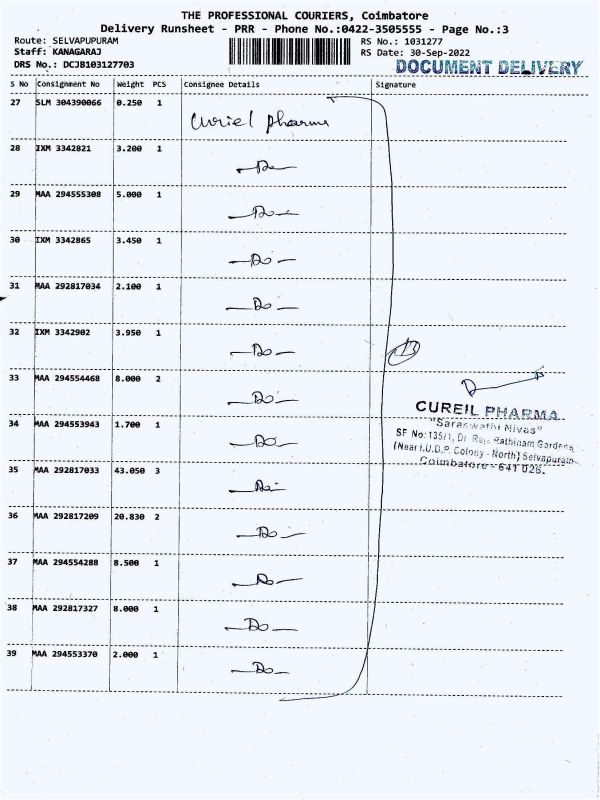 THE PROFESSIONAL COURIERS, Coimbatore
Delivery Runsheet - PRR - Phone No.:0422-3505555 - Page No.:3
Route: SELVAPUPURAM RS No.: 1031277
Staff: KANAGARAJ RS Date: 30-Sep-2022
DRS No.: DCJB103127703 DOCUMENT DELIVERY
S No Consignment No Weight PCS Consignee Details Signature
27 SLM 304390066 0.250 1 Curiel pharma
28 IXM 3342821 3.200 1 -Do-
29 MAA 294555308 5.000 1 -Do-
30 IXM 3342865 3.450 1 -Do-
31 MAA 292817034 2.100 1 -Do-
32 IXM 3342902 3.950 1 -Do- 13
33 MAA 294554468 8.000 2 -Do-
CUREIL PHARMA
"Saraswathi Nivas"
34 MAA 294553943 1.700 1 -Do- SF No:135/1, Dr. Raja Rathinam Gardens,
(Near I.U.D.P. Colony - North) Selvapuram
Coimbatore - 641 026.
35 MAA 292817033 43.050 3 -Do-
36 MAA 292817209 20.830 2 -Do-
37 MAA 294554288 8.500 1 -Do-
38 MAA 292817327 8.000 1 -Do-
39 MAA 294553370 2.000 1 -Do-